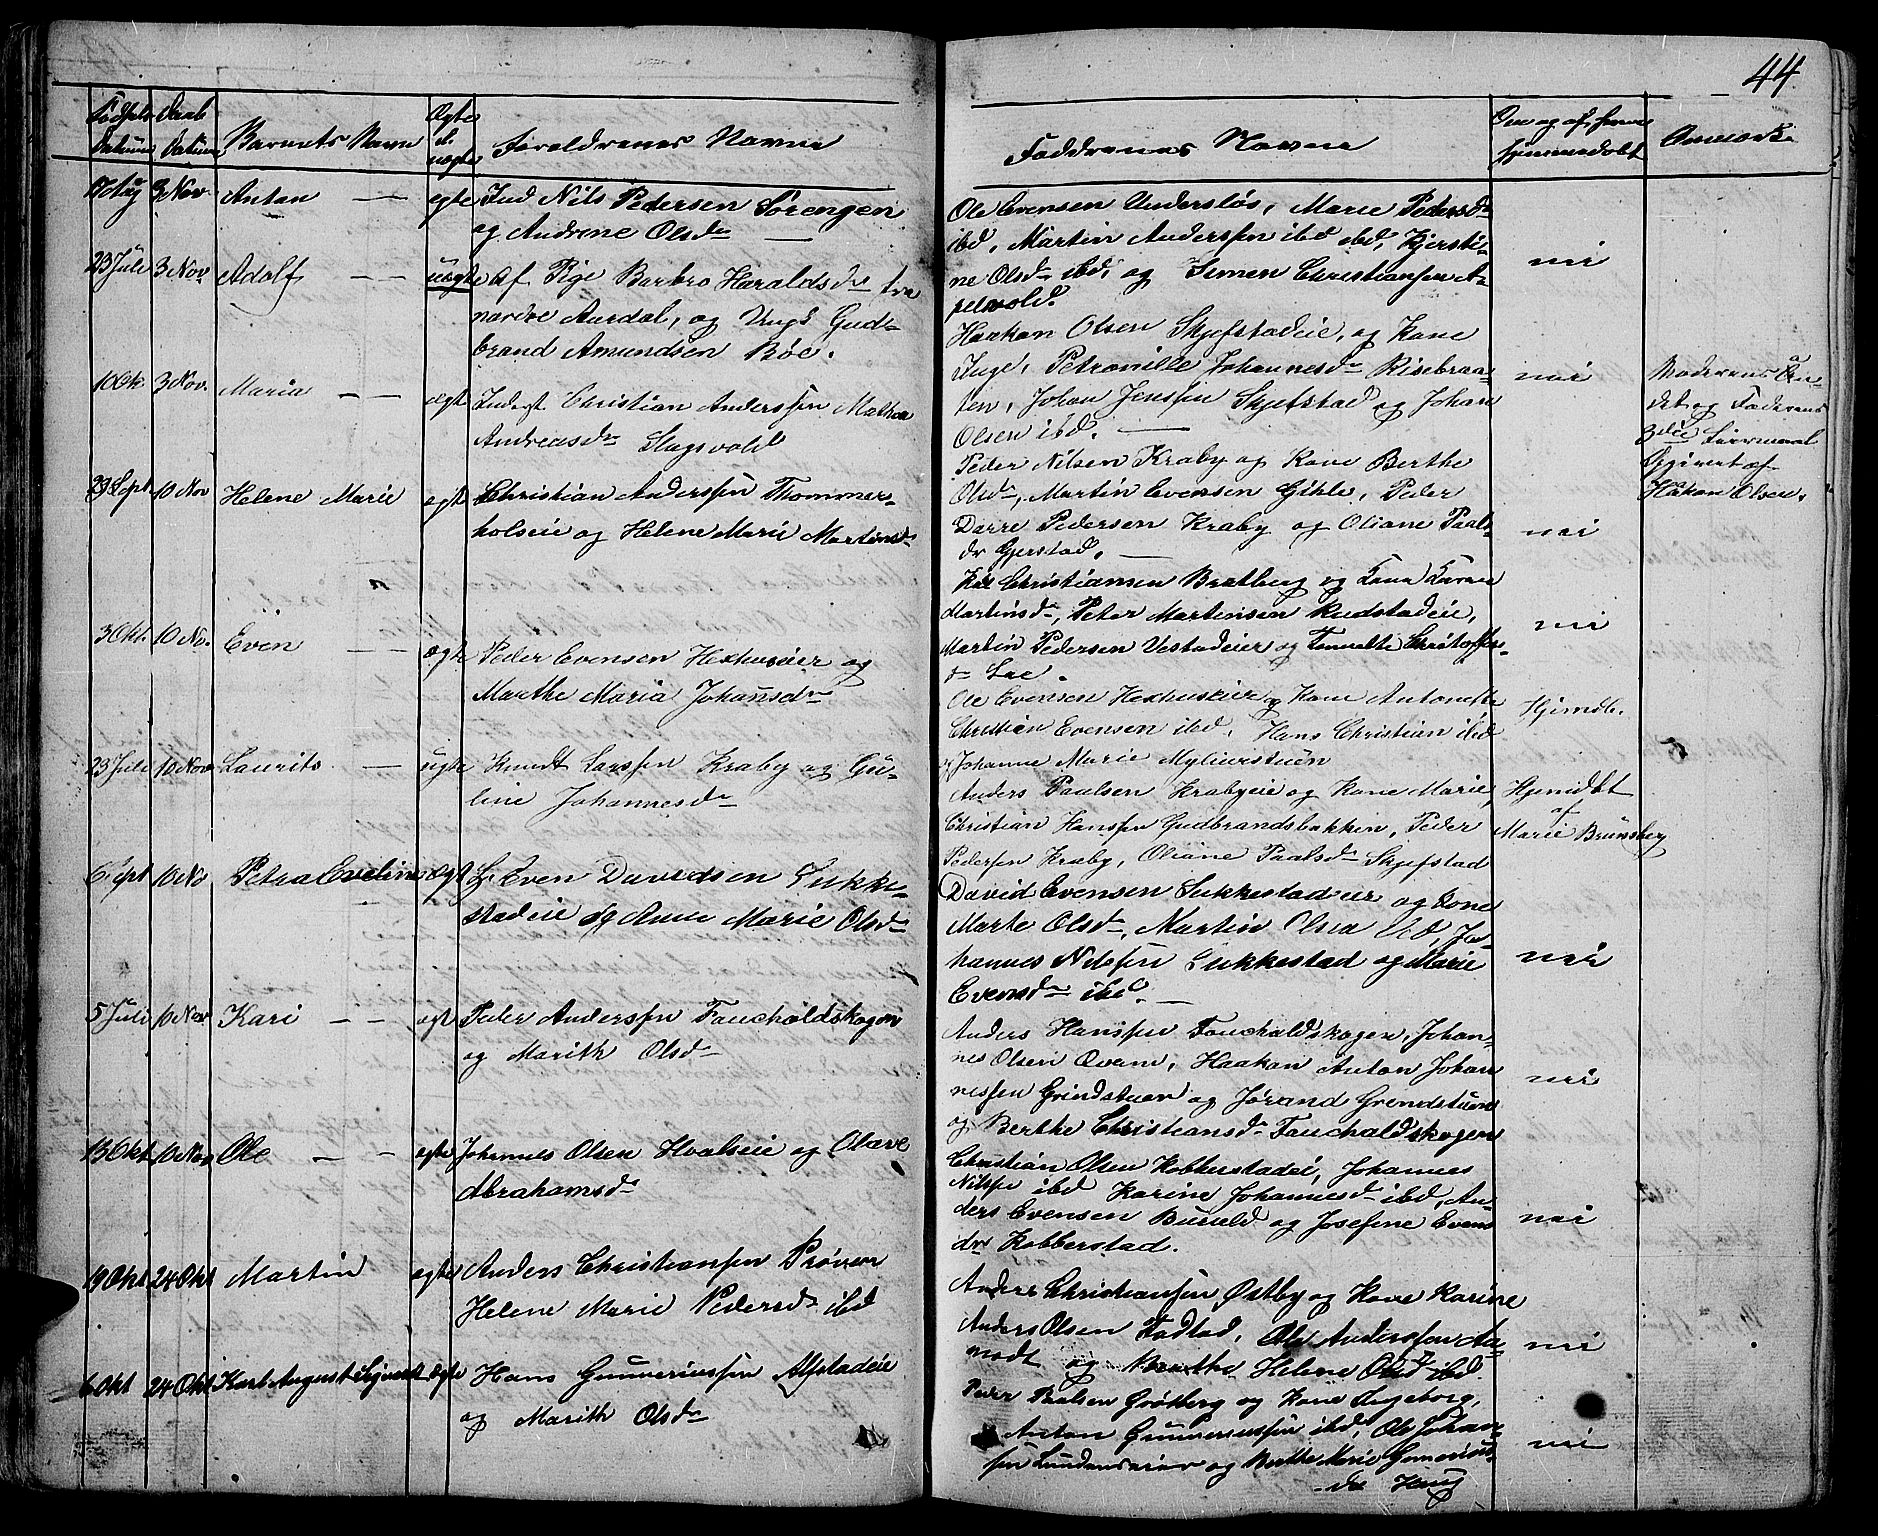 44.
Fødsels Daab Barnets Navn Ægte Foreldrenes Navne
Datum Datum uægte
Faddrenes Navne
Om og af hvem hjemmedøbt
Anmærk.
17 Aug 3 Nov. Anton — ægte Ind Nils Pedersen Sörengen
og Andrene Olsdr —
Ole Evensen Undersløs, Marie Pedersdr
ibd, Martin Anderssen ibd ibd, Kjersti-
ne Olsdr ibd, og Simen Christiansen A-
pelvold.
nei
23 Juli 3 Nov. Adolf — — uægte af Pige Barbro Haraldsdr fra
nordre Aurdal, og Ungk Gud-
brand Amundsen Böe.
Haakon Olsen Skjefstadeie, og Kone
Inge, Petronille Johannesdr Risebraa-
ten, Johan Jenssen Skjefstad og Johan
Olsen ibd. —
nei
Moderens
det og Faderens
3die Leiermaal
Opgivet af
Håkon Olsen.
1 Ok 3 Nov. Maria — — ægt Indegt Christian Anderssen
Andreasdr Slagsvold
Peder Nilsen Kraby og Kone Berthe
Olsdr, Martin Evensen Gihle, Peder
Dorre Pedersen Kraby og Oliane Paals-
dr Gjerstad. —
nei
29 Sept 10 Nov Helene Marie ægt Christian Anderssen Thommes-
holseie og Helene Marie Martinsdr
Christiansen Bratberg og Kone Karen
Martinsdr, Peter Martinsen Rudstadeie,
Martin Pedersen Vestadeier og Christoffers-
dr Loe.
nei
3 Okt. 10 No. Even — — ægte Peder Evensen Hexhuseier og
Marthe Maria Johansdr
Ole Evensen Hexhuseier og Kone Antonette
Christian Evensen ibd, Hans Christian ibd
og Johanne Marie Myhrerstuen
Hjemdb.
23 Juli 10 Nov Laurits — uægte Knudt Larssen Kraby og Gu-
line Johannesdr
Anders Paalsen Krabyeie og Kone Marie,
Christian Hanssen Gudbrandsbakken, Peder
Pedersen Kraby, Oliane Paalsdr Skjefstad
Hjemdbt
af
Marie Brunsberg
6 Sept 10 No Petra Eveline ægt Even Davidsen Sukke-
stadeie og Anne Marie Olsdr
David Evensen Sukkestadeier og Kone
Marte Olsdr, Martin Olsen ibd, Jo-
hannes Nilssen Sukkestad og Marie
Evensdr ibd. —
nei
5 Juli 10 Nov Kari — — ægt Peder Anderssen Fauchaldskogen
og Marith Olsdr
Anders Hanssen Fauchaldskogen, Johan-
nes Olsen Qvem, Haakon Anton Johan
nessen Grindstuen og Jörand Grendstuen
og Berthe Christiansdr Fauchaldskogen
nei
13 Okt 10 Nov Ole — — ægte Johannes Olsen Hvalseie og Olave
Abrahamsdr
Christian Olsen Kobberstadei, Johannes
Nilsse ibd Karine Johannesdr ibd, An-
ders Evensen Buruld og Josefine Evens
dr Kobberstad.
nei
19 Okt 24 Okt Martin ægte Anders Christianssen Pröven
Helene Marie Pedersdr ibd
Anders Christianssen Østby og Kone Karine
Anders Olsen Fodstad, Ole Anderssen Aa-
modt og Berthe Helene Olsdr ibd.
nei
6 Okt 24 Okt Karl August Sigvardt ægte Hans Gunneriussen Alfstadeie
og Marith Olsdr
Peder Paalsen Gröttberg og Kone Ingeborg,
Anton Gunneriussen ibd, Ole Johan-
sen Lundenseier og Berthe Marie Gonerius-
dr Haug
nei